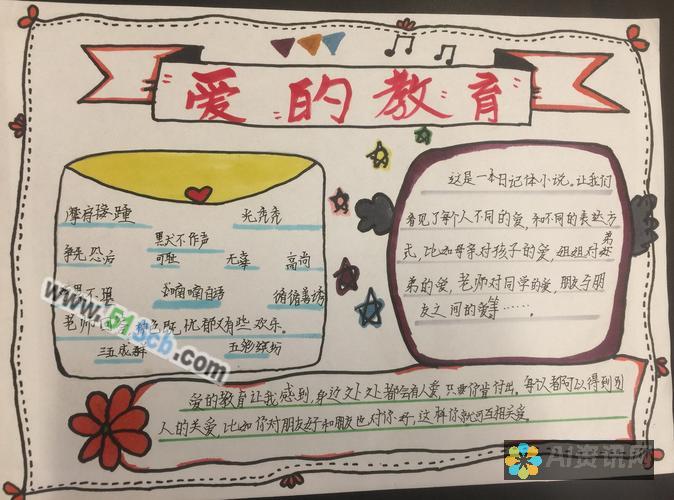 爱的教育
摩肩接踵 光秃秃
默不作声
争先恐后 可耻 无辜 高尚
喃喃自语 循循善诱
老师 忧郁又有些欢乐。
三五成群 五彩缤纷
这是一本日记体小说。让我们
看见了每个人不同的爱,和不同的表达方
式,比如母亲对孩子的爱,姐姐对弟
弟的爱,老师对同学的爱,朋友与朋
友之间的爱等……
爱的教育让我感到,身边处处都会有人爱,只要你肯付出。每次都可以得到别
人的关爱,比如你对朋友好和朋友也对你好,这样你就可互相关爱。
www.51scb.com
AI资讯网